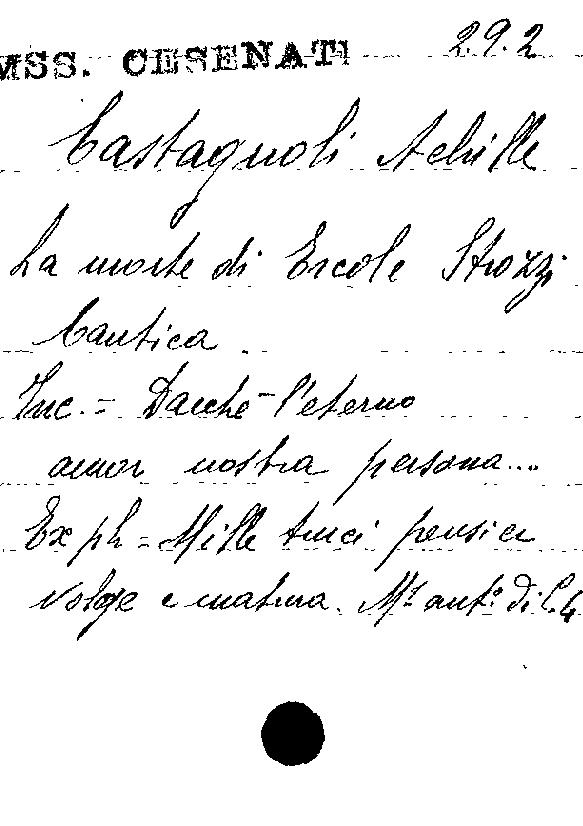 MSS. CESENATI 29.2
Castagnoli Achille
La morte di Ercole Strozzi
Cantica
Inc. = Dacchè l'eterno
amor nostra persona...
Exph = Mille truci pensier
volge e matura. Ms. ant.º di C. 4